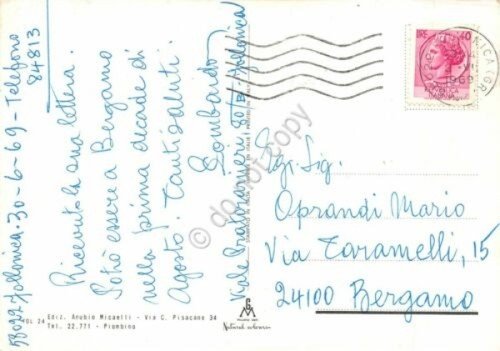 58022 Follonica. 30-6-69-Telefono
84813
Ricevuto la sua lettera.
Potrò essere a Bergamo
nella prima decade di
Agosto. Tanti saluti.
Lombardo
Viale Follonica
Ediz. Anubio Micaelli - Via C. Pisacane 34
Tel. 22.771 - Piombino
Natural colorcorn
LIRE 40
FOLLONICA (GR)
1969
Egr. Sig.
Oprandi Mario
Via Taramelli, 15
24100 Bergamo
do not copy